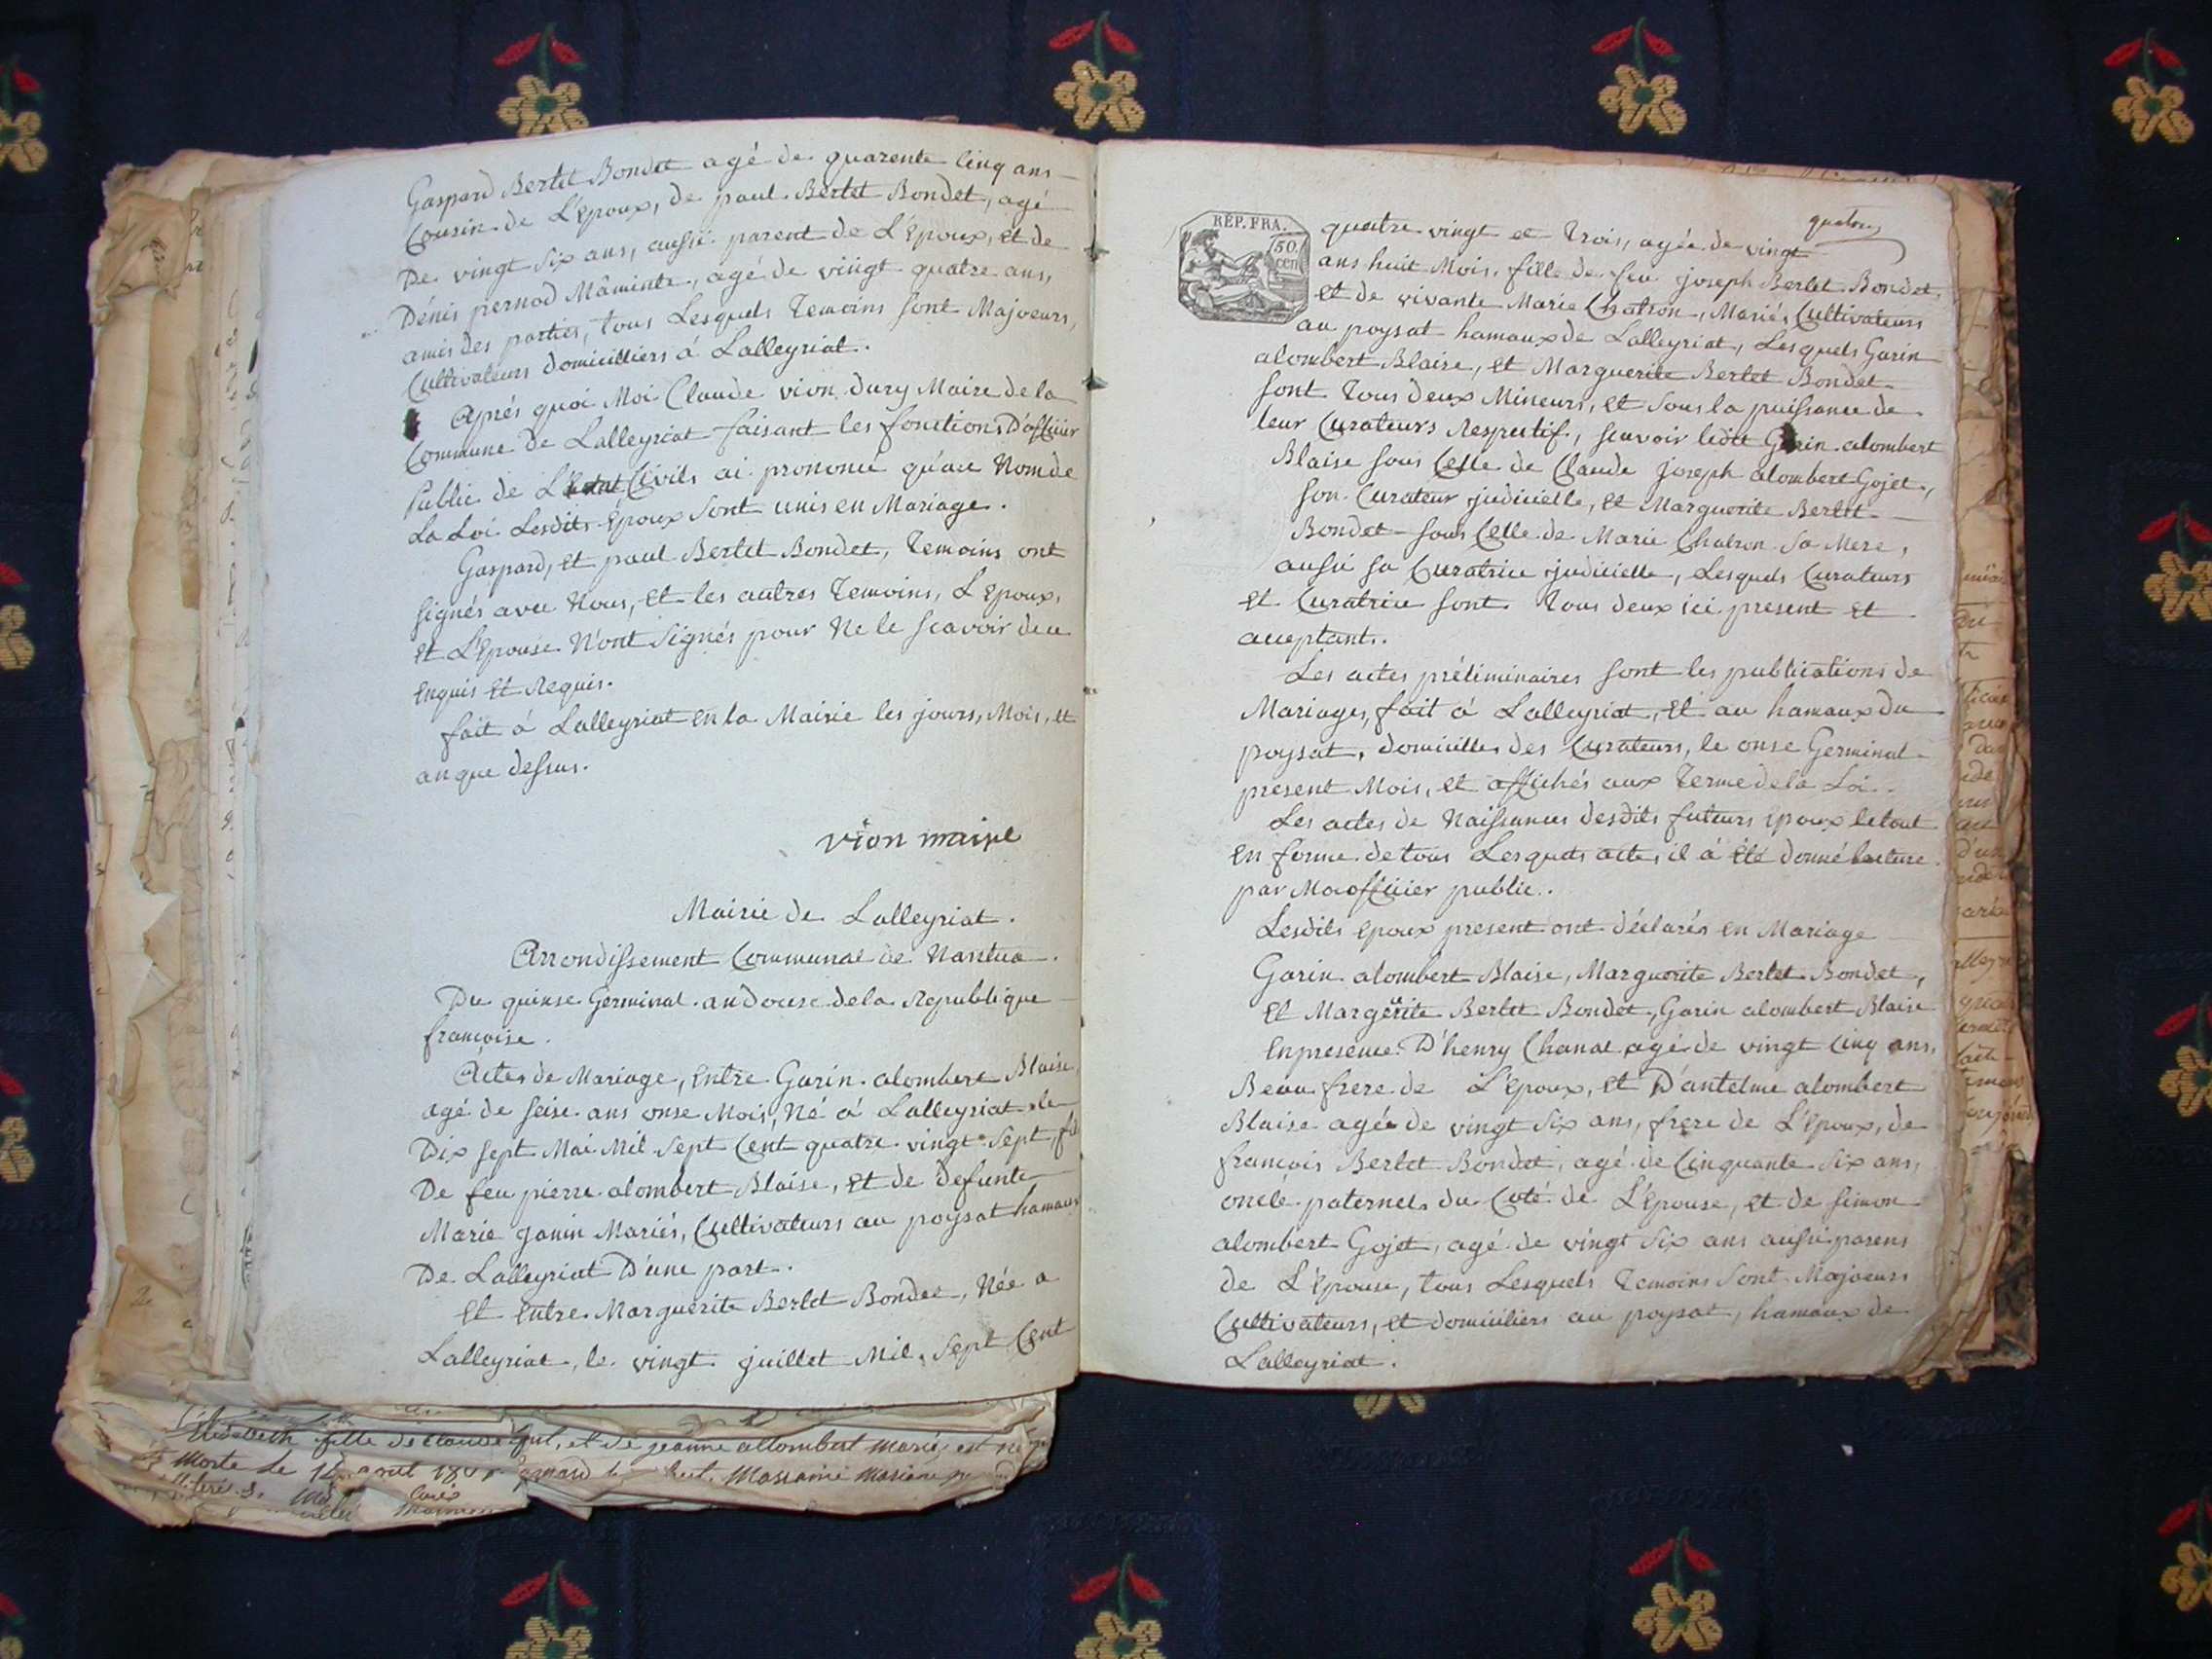 Gaspard Bertet Bondet agé de quarente Cinq ans
Cousin de L'Epoux, de paul Bertet Bondet, agé
De vingt Six ans, aussi parent de L'Epoux, et de
Dénis pernod Maminte, agé de vingt quatre ans,
amis des parties, tous Lesquels Temoins sont Majoeurs,
Cultivateurs domicilliers á Lalleyriat.
Aprés quoi Moi Claude vion dury Maire de la
Commune de Lalleyriat faisant les fonctions D'officier
Public de L'Etat Civils ai prononcé qu'au Nom de
La Loi Lesdits Epoux sont unis en Mariage.
Gaspard, et paul Bertet Bondet, Temoins ont
signés avec Nous, et les autres Temoins, L'Epoux,
et L'Epouse N'ont Signés pour Ne le scavoir de ce
Enquis et Requis.
fait á Lalleyriat en la Mairie les jours, Mois, et
an que dessus.
vion maire
Mairie de Lalleyriat.
Arrondissement Communal de Nantua.
Du quinse Germinal an Douse de la Republique
françoise.
Actes de Mariage, Entre Garin alombert Blaise,
agé de seise ans onse Mois, Né á Lalleyriat le
Dix sept Mai Mil Sept Cent quatre vingt Sept, fils
De feu pierre alombert Blaise, et de Defunte
Marie Janin Mariés, Cultivateurs au poysat hamaux
De Lalleyriat D'une part.
Et Entre Marguerite Bertet Bondet, Née a
Lalleyriat, le vingt juillet Mil, Sept Cent
RÉP. FRA.
50
cen
quatre
quatre vingt et Trois, agée de vingt
ans huit Mois, fille de feu joseph Bertet Bondet,
et de vivante Marie Chatron, Mariés, Cultivateurs
au poysat hamaux de Lalleyriat, Lesquels Garin
alombert Blaise, et Marguerite Bertet Bondet
sont Tous deux Mineurs, et Sous la puissance de
leur Curateurs Respectif, scavoir ledit Garin alombert
Blaise sous Celle de Claude joseph alombert Gojet,
son Curateur judicielle, et Marguerite Bertet
Bondet sous Celle de Marie Chatron Sa Mere,
aussi sa Curatrice judicielle, Lesquels Curateurs
et Curatrice sont Tous deux ici present et
acceptant.
Les actes préliminaires sont les publications de
Mariages, fait á Lalleyriat, et au hamaux du
poysat, domicilles des Curateurs, le onse Germinal
present Mois, et affichés aux Terme de la Loi.
Les actes de Naissances desdits futeurs Epoux le tout
en forme de tous Lesquels actes il á été donné lecture
par Moi officier public.
Lesdits Epoux present ont déclarés en Mariage
Garin alombert Blaise, Marguerite Bertet Bondet,
Et Margerite Bertet Bondet, Garin alombert Blaise
En presence D'henry Chanal agé de vingt Cinq ans,
Beau frere de L'Epoux, et D'antelme alombert
Blaise agée de vingt Six ans, frere de L'Epoux, de
francois Bertet Bondet, agé de Cinquante Six ans,
oncle paternel du Coté de L'Epouse, et de simon
alombert Gojet, agé de vingt Six ans aussi parens
de L'Epouse, tous Lesquels Temoins sont Majoeurs
Cultivateurs, et domiciliers au poysat, hamaux de
Lalleyriat.
fille de claude et de jeanne allombert mariés est
Morte le